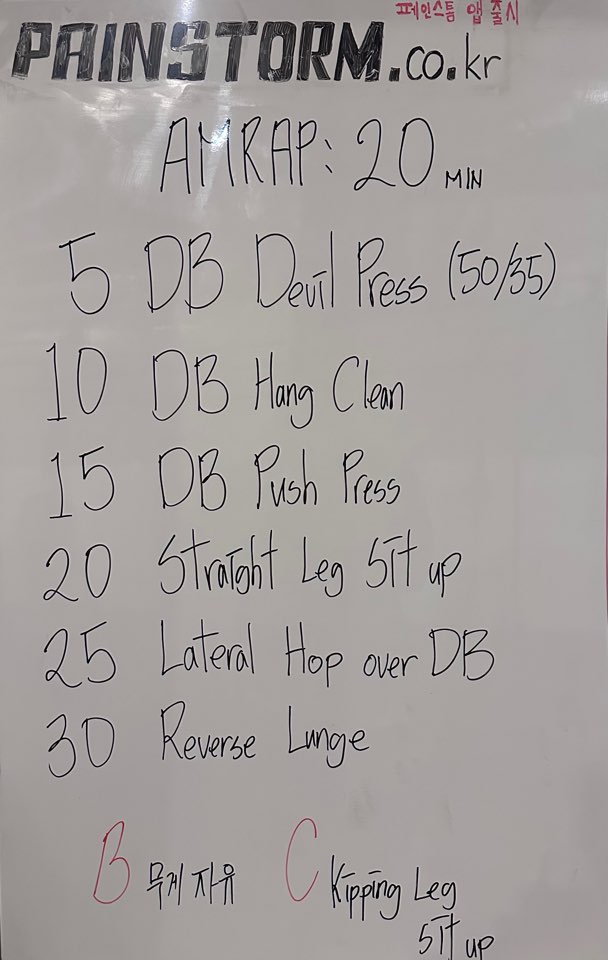 페인스톰 앱 출시
PAINSTORM.co.kr
AMRAP: 20 MIN
5 DB Devil Press (50/35)
10 DB Hang Clean
15 DB Push Press
20 Straight Leg Sit up
25 Lateral Hop over DB
30 Reverse Lunge
B 무게 자유 C Kipping Leg
Sit up